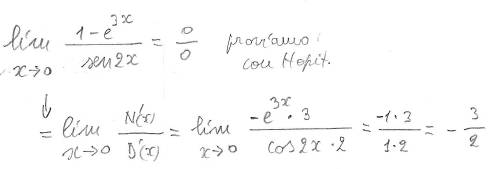 lim x→0 (1-e^3x)/(sen2x) = 0/0 proviamo
con Hopit.
↓ = lim x→0 N'(x)/D'(x) = lim x→0 (-e^3x · 3)/(cos2x · 2) = (-1·3)/(1·2) = - 3/2